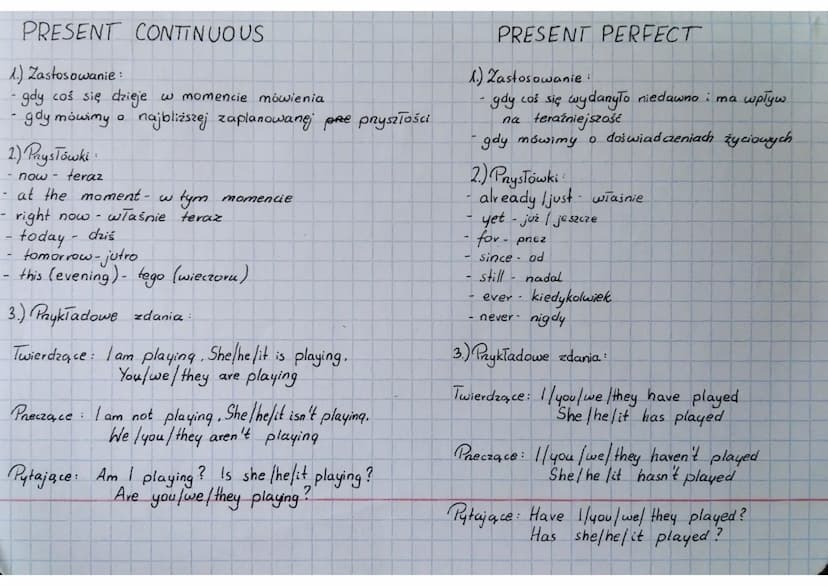 PRESENT CONTINUOUS
1.) Zastosowanie:
- gdy coś się dzieje w momencie mówienia
- gdy mówimy o najbliższej zaplanowanej prze przyszłości
2.) Przysłówki:
- now - teraz
- at the moment - w tym momencie
- right now - właśnie teraz
- today - dziś
- tomorrow - jutro
- this (evening) - tego (wieczoru)
3.) Przykładowe zdania:
Twierdzące: I am playing. She/he/it is playing.
You/we/they are playing
Przeczące: I am not playing. She/he/it isn't playing.
We/you/they aren't playing
Pytające: Am I playing? Is she/he/it playing?
Are you/we/they playing?
PRESENT PERFECT
1.) Zastosowanie:
- gdy coś się wydarzyło niedawno i ma wpływ
na teraźniejszość
- gdy mówimy o doświadczeniach życiowych
2.) Przysłówki:
- already/just - właśnie
- yet - już/jeszcze
- for - przez
- since - od
- still - nadal
- ever - kiedykolwiek
- never - nigdy
3.) Przykładowe zdania:
Twierdzące: I/you/we/they have played
She/he/it has played
Przeczące: I/you/we/they haven't played
She/he/it hasn't played
Pytające: Have I/you/we/they played?
Has she/he/it played?